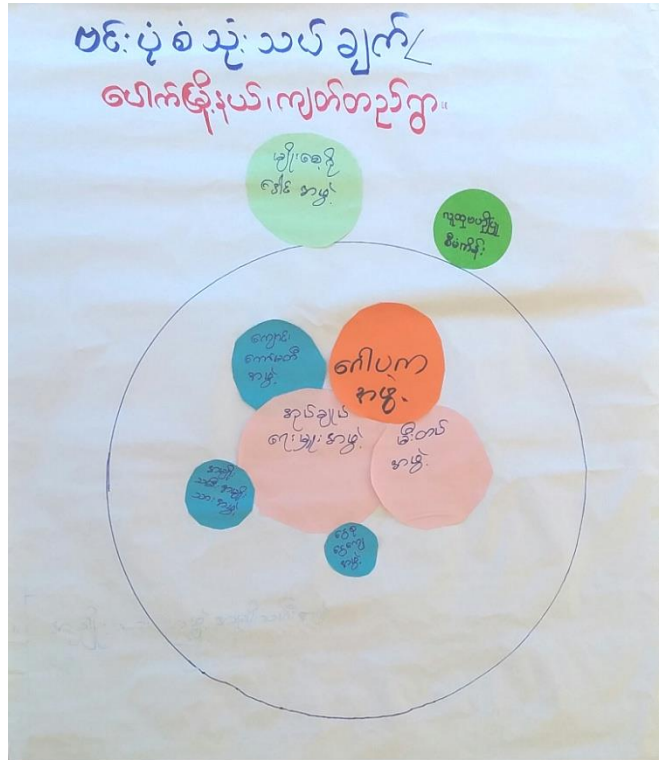 ဗင်းပုံစံသုံးသပ်ချက်/
ပေါက်မြို့နယ်၊ကျတ်တဉ်ရွာ။
မျိုးစေ့ဂို
ဒေါင် အဖွဲ့
လူထုဗဟိုပြု
စီမံကိန်း
ကျောင်း
ကော်မတီ
အဖွဲ့
ဂေါပက
အဖွဲ့
အုပ်ချုပ်
ရေးမှူးအဖွဲ့
မီးသတ်
အဖွဲ့
အဖွဲ့
ငွေစု
ငွေချေး
အဖွဲ့